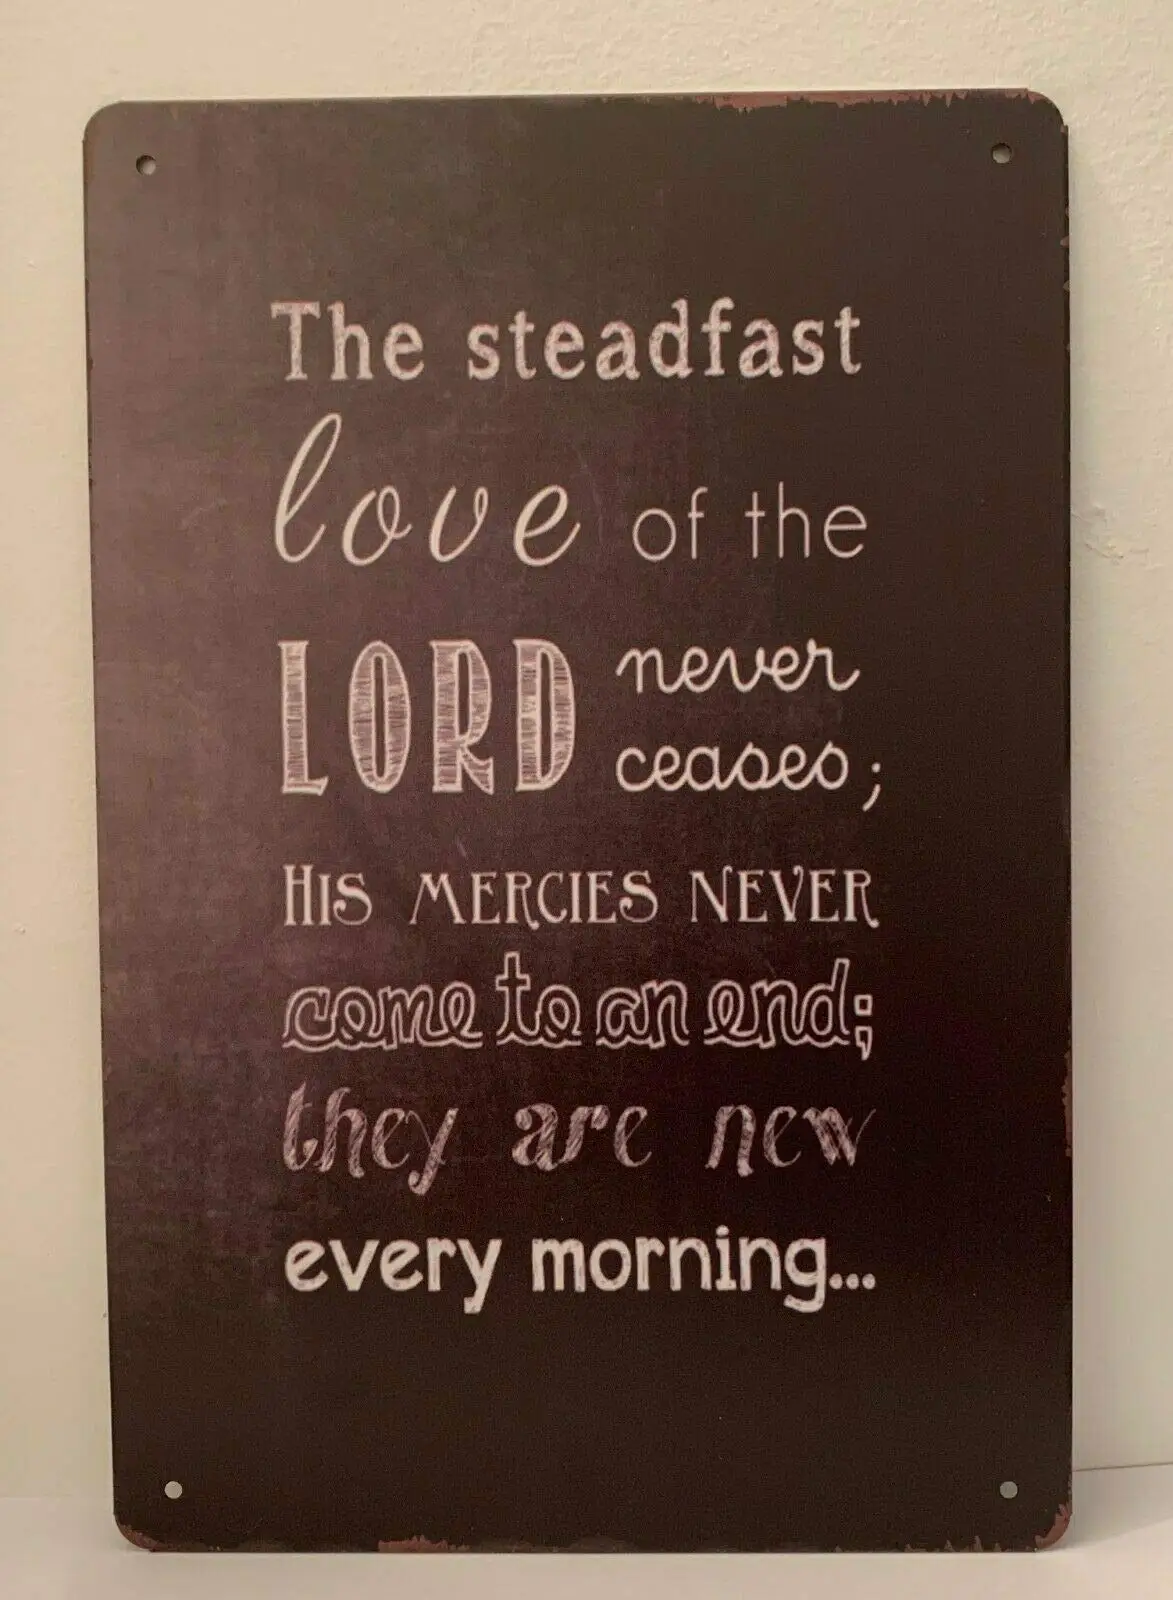 The steadfast
love of the
LORD never
ceases;
HIS MERCIES NEVER
come to an end;
they are new
every morning...